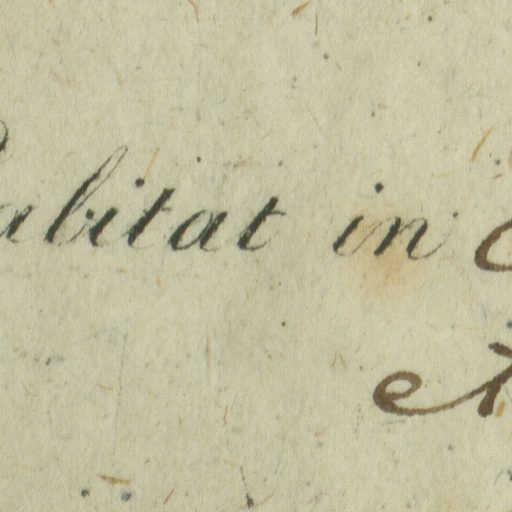 abitat in